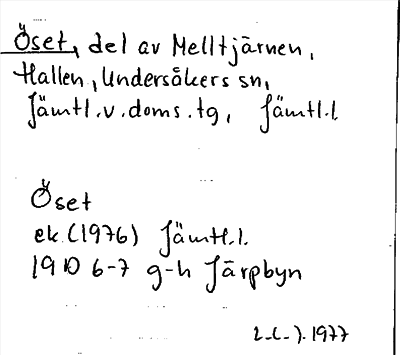 Öset, del av Melltjärnen,
Hallen, Undersåkers sn,
Jämtl.v.doms.tg, Jämtl.l.
Öset
ek.(1976) Jämtl.l.
19D 6-7 g-h Järpbyn
1977